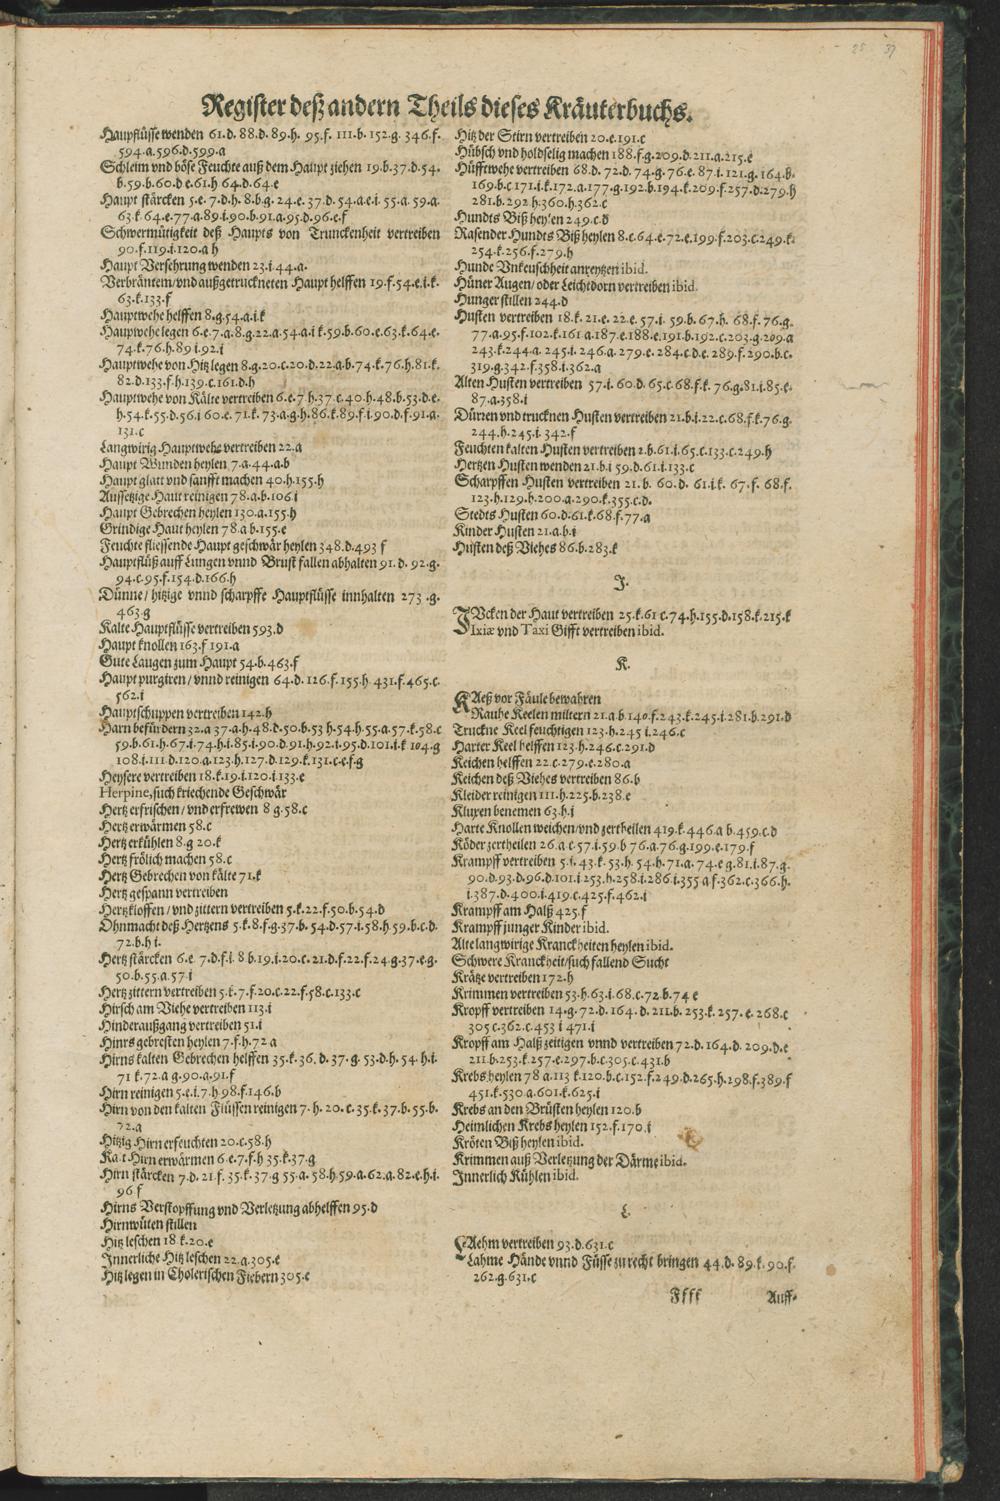 Register deß andern Theils dieses Kräuterbuchs.
Hauptflüsse wenden 61.d. 88.d. 89.h. 95.f. 111.b. 152.g. 346.f.
594.a.596.d.599.a
Schleim vnd böse Feuchte auß dem Haupt ziehen 19.b.37.d.54.
b.59.b.60.d e.61.h 64.d.64.e
Haupt stärcken 5.e. 7.d.h. 8.b.g. 24.e. 37.d. 54.a.e.i. 55.a. 59.a.
63.k.64.e.77.a.89.i.90.b.91.a.95.d.96.e.f
Schwermütigkeit deß Haupts von Trunckenheit vertreiben
90.f.119.i.120.a h
Haupt Versehrung wenden 23.i.44.a.
Verbräntem/vnd außgetruckneten Haupt helffen 19.f.54.e.i.k.
63.k.133.f
Hauptwehe helffen 8.g.54.a.i.k
Hauptwehe legen 6.e.7.a.8.g.22.a.54.a.i k.59.b.60.e.63.k.64.e.
74.k.76.h.89 i.92.i
Hauptwehe von Hitz legen 8.g.20.c.20.d.22.a.b.74.k.76.h.81.k.
82.d.133.f.h.139.c.161.d.h
Hauptwehe von Kälte vertreiben 6.e.7 h.37.c.40.h.48.b.53.d.e.
h.54.k.55.d.56.i 60.e.71.k.73.a.g.h.86.k.89.f i.90.d.f.91.a.
131.c
Langwirig Hauptwehe vertreiben 22.a
Haupt Wunden heylen 7.a.44.a.b
Haupt glatt vnd sanfft machen 40.h.155.h
Aussetzige Haut reinigen 78.a.b.106 i
Haupt Gebrechen heylen 130.a.155.h
Grindige Haut heylen 78.a b.155.e
Feuchte fliessende Haupt geschwär heylen 348.d.493 f
Hauptflüß auff Lungen vnnd Brust fallen abhalten 91.d. 92.g.
94.c.95.f.154.d.166.h
Dünne/ hitzige vnnd scharpffe Hauptflüsse innhalten 273 .g.
463.g
Kalte Hauptflüsse vertreiben 593.d
Haupt knollen 163.f 191.a
Gute Laugen zum Haupt 54.b.463.f
Haupt purgiren / vnnd reinigen 64.d. 126.f. 155.h 431.f.465.c.
562.i
Hauptschuppen vertreiben 142.h
Harn befürdern 32.a 37.a.h.48.d.50.b.53 h.54.h.55.a.57.k.58.c
59.b.61.h.67.i.74.h.i.85.i.90.d.91.h.92.i.95.d.101.i.k 104.g
108.i.111.d.120.a.123.h.127.d.129.k.131.c.e.f.g
Heysere vertreiben 18.k.19.i.120.i.133.e
Herpine, such kriechende Geschwär
Hertz erfrischen / vnd erfrewen 8 g.58.c
Hertz erwärmen 58.c
Hertz erkühlen 8.g 20.k
Hertz frölich machen 58.c
Hertz Gebrechen von kälte 71.k
Hertz gespann vertreiben
Hertzkloffen / vnd zittern vertreiben 5.k.22.f.50.b.54.d
Ohnmacht deß Hertzens 5.k.8.f.g.37.b. 54.d.57.i.58.h 59.b.c.d.
72.b.h i.
Hertz stärcken 6.e. 7.d.f.i. 8 b.19.i.20.c.21.d.f.22.f.24.g.37.e.g.
50.b.55.a.57 i
Hertz zittern vertreiben 5.k.7.f.20.c.22.f.58.c.133.c
Hirsch am Viehe vertreiben 113.i
Hinderaußgang vertreiben 51.i
Hinrs gebresten heylen 7.f.h.72 a
Hirns kalten Gebrechen helffen 35.k.36.d. 37.g. 53.d.h. 54 h.i.
71 k.72.a g.90.a.91.f
Hirn reinigen 5.e.i.7.h 98.f.146.b
Hirn von den kalten Flüssen reinigen 7.h. 20.c.35.k.37.b.55.b.
72.a
Hitzig Hirn erfeuchten 20.c.58.h
Kalt Hirn erwärmen 6.e.7.f.h 35.k.37.g
Hirn stärcken 7.d. 21.f. 35.k.37.g 55.a. 58.h 59.a.62.a.82.e.h.i.
96 f
Hirns Verstopffung vnd Verletzung abhelffen 95.d
Hirnwüten stillen
Hitz leschen 18 k.20.e
Innerliche Hitz leschen 22.a.305.e
Hitz legen in Cholerischen Fiebern 305.e
Hitz der Stirn vertreiben 20.e.191.c
Hübsch vnd holdselig machen 188.f.g.209.d.211.a.215.e
Hüfftwehe vertreiben 68.d. 72.d. 74.g. 76.e. 87.i. 121.g. 164.b.
169.b.c 171.i.k.172.a.177.g.192.b.194.k.209.f.257.d.279.h
281.b.292 h.360.h.362.c
Hundts Biß heylen 249.c.d
Rasender Hundts Biß heylen 8.c.64.e.72.e.199.f.203.c.249.k.
254.k.256.f.279.h
Hunde Vnkeuschheit anreytzen ibid.
Hüner Augen/ oder Leichtdorn vertreiben ibid.
Hunger stillen 244.d
Husten vertreiben 18.k. 21.e. 22.e. 57.i. 59.b. 67.h. 68.f. 76.g.
77.a.95.f.102.k.161 a.187.e.188.e.191.b.192.c.203.g.209.a
243.k.244.a. 245.i. 246.a. 279.e. 284.c d.e. 289.f. 290.b.c.
319.g.342.f.358.i.362.a
Alten Husten vertreiben 57.i. 60.d. 65.c.68.f.k. 76.g.81.i.85.e.
87.a.358.i
Dürren vnd trucknen Husten vertreiben 21.b.i.22.c.68.f.k.76.g.
244.h.245.i. 342.f
Feuchten kalten Husten vertreiben 2.b.61.i.65.c.133.c.249.h
Hertzen Husten wenden 21.b.i 59.d.61.i.133.c
Scharpffen Husten vertreiben 21. b. 60.d. 61.i.k. 67. f. 68.f.
123.h.129.h.200.a.290.k.355.c.d.
Stedts Husten 60.d.61.k.68.f.77.a
Kinder Husten 21.a.b.i
Husten deß Viehes 86.b.283.k
J.
JVcken der Haut vertreiben 25.k.61 c.74.h.155.d.158.k.215.k
Ixiæ vnd Taxi Gifft vertreiben ibid.
K.
KAeß vor Fäule bewahren
Rauhe Keelen miltern 21.a b.140.f.243.k.245.i.281.b.291.d
Truckne Keel feuchtigen 123.h.245 i.246.c
Harter Keel helffen 123.h.246.c.291.d
Keichen helffen 22.c.279.e.280.a
Keichen deß Viehes vertreiben 86.b
Kleider reinigen 111.h.225.b.238.e
Kluxen benemen 63.h.i
Harte Knollen weichen/vnd zertheilen 419.k.446.a b.459.c.d
Köder zertheilen 26.a c.57.i.59.b 76.a.76.g.199.e.179.f
Krampff vertreiben 5.i.43.k.53.h. 54.h.71.a.74.e g.81.i.87.g.
90.d.93.d.96.d.101.i 253.h.258.i.286 i.355 a f.362.c.366.h.
i.387.d.400.i.419.c.425.f.462.i
Krampff am Halß 425.f
Krampff junger Kinder ibid.
Alte langwirige Kranckheiten heylen ibid.
Schwere Kranckheit/such fallend Sucht
Krätze vertreiben 172.h
Krimmen vertreiben 53.h.63.i.68.c.72.b.74 e
Kropff vertreiben 14.g.72.d. 164.d. 211.b. 253.k. 257. e. 268.c
305 c.362.c.453 i 471.i
Kropff am Halß zeitigen vnnd vertreiben 72.d.164.d. 209.d.e
211.b.253.k.257.e.297.b.c.305.c.431.b
Krebs heylen 78 a.113 k.120.b.c.152.f.249.d.265.h.298.f.389.f
451.k.530 a.601.k.625.i
Krebs an den Brüsten heylen 120.b
Heimlichen Krebs heylen 152.f.170.i
Kröten Biß heylen ibid.
Krimmen auß Verletzung der Därme ibid.
Innerlich Kühlen ibid.
L.
LAehm vertreiben 93.d.631.c
Lahme Hände vnnd Füsse zu recht bringen 44.d. 89.k. 90.f.
262.g.631.c
Ffff
Auff-